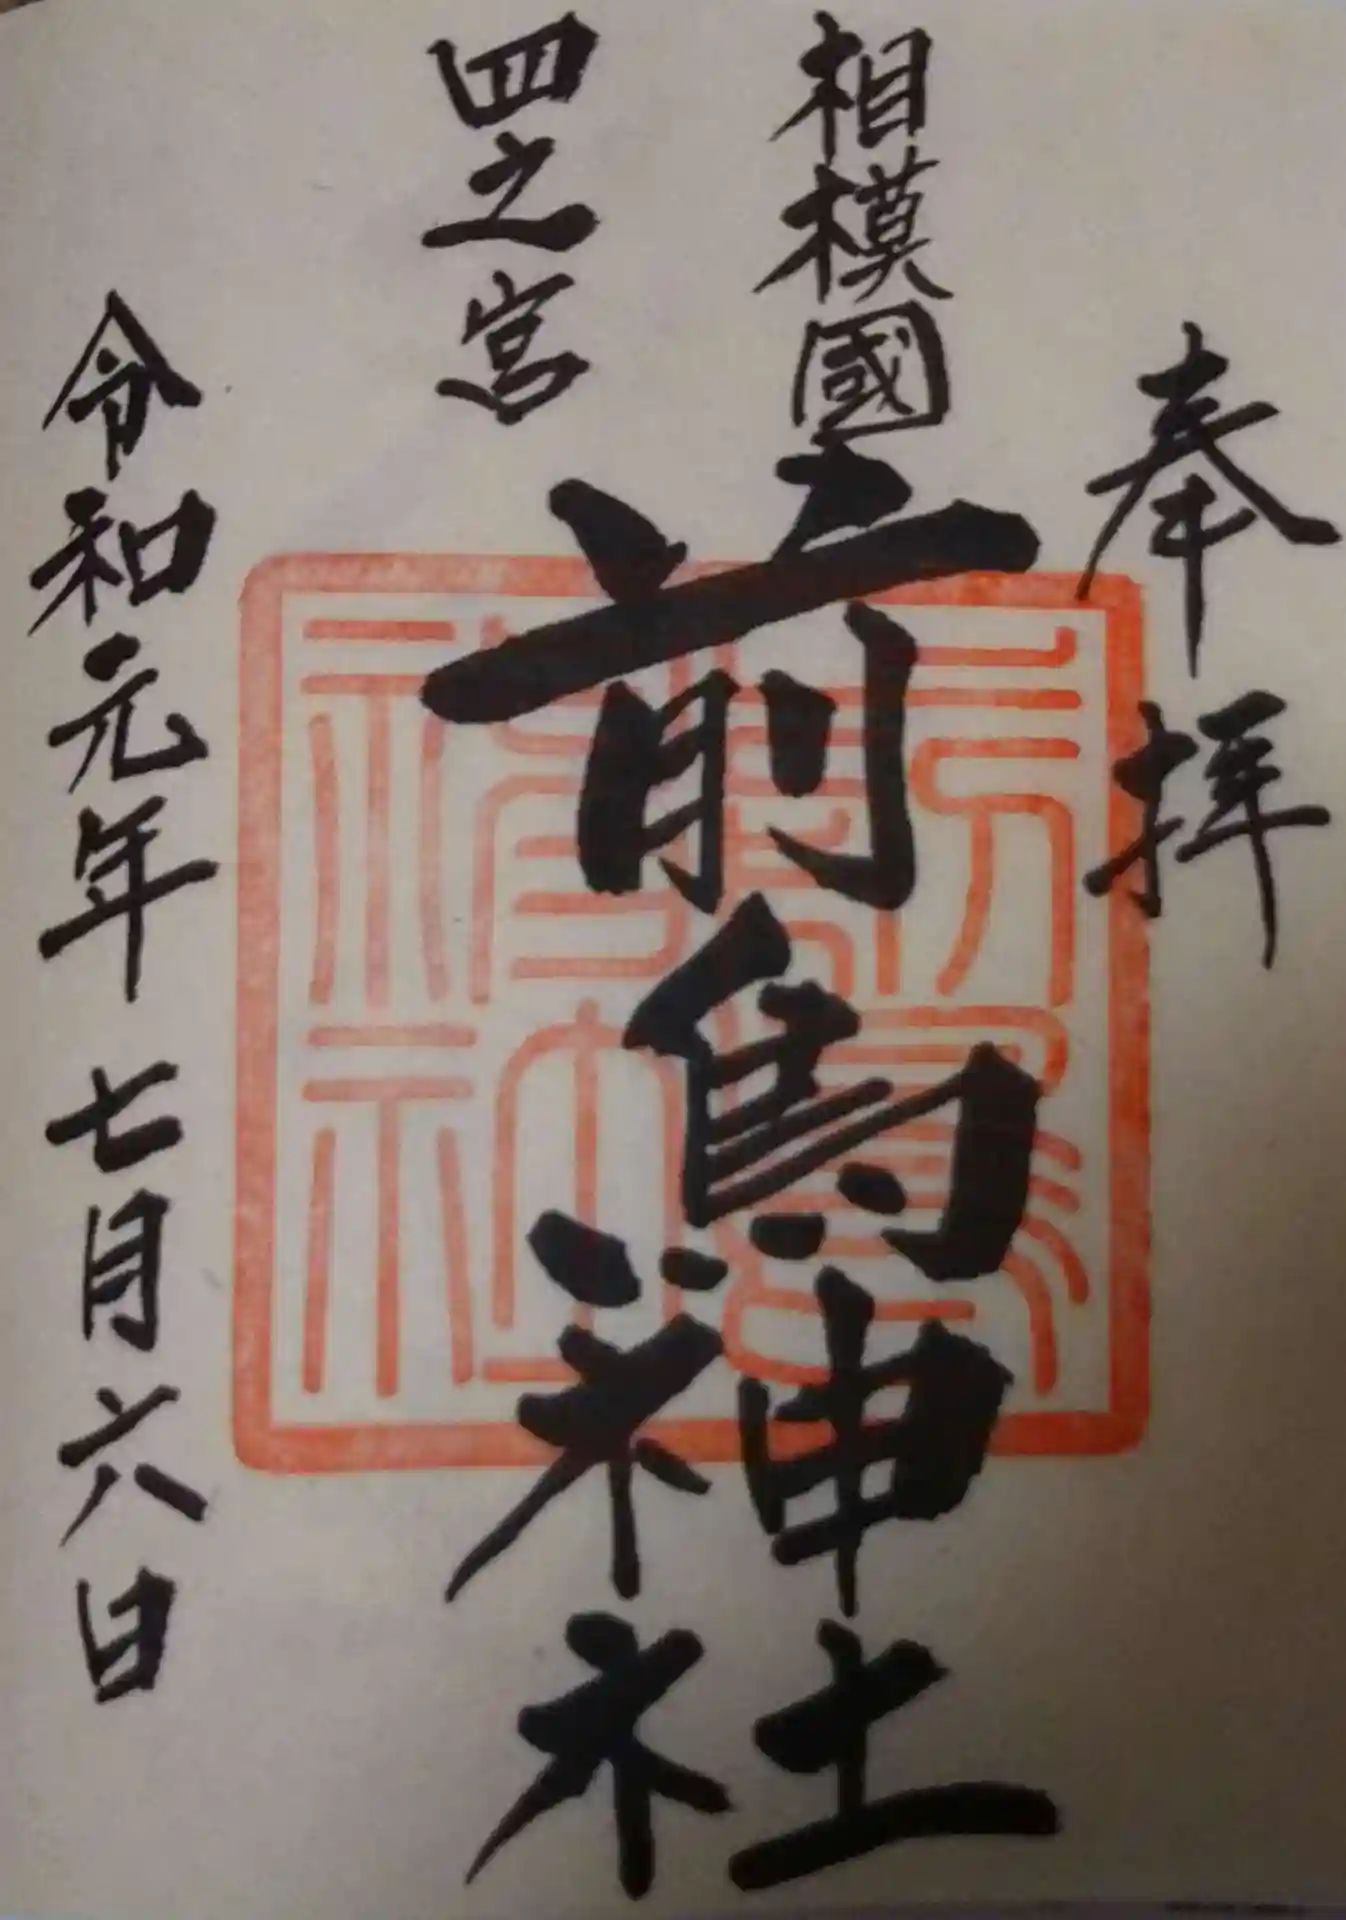 奉拝
相模國
四之宮
前鳥神社
令和元年七月六日